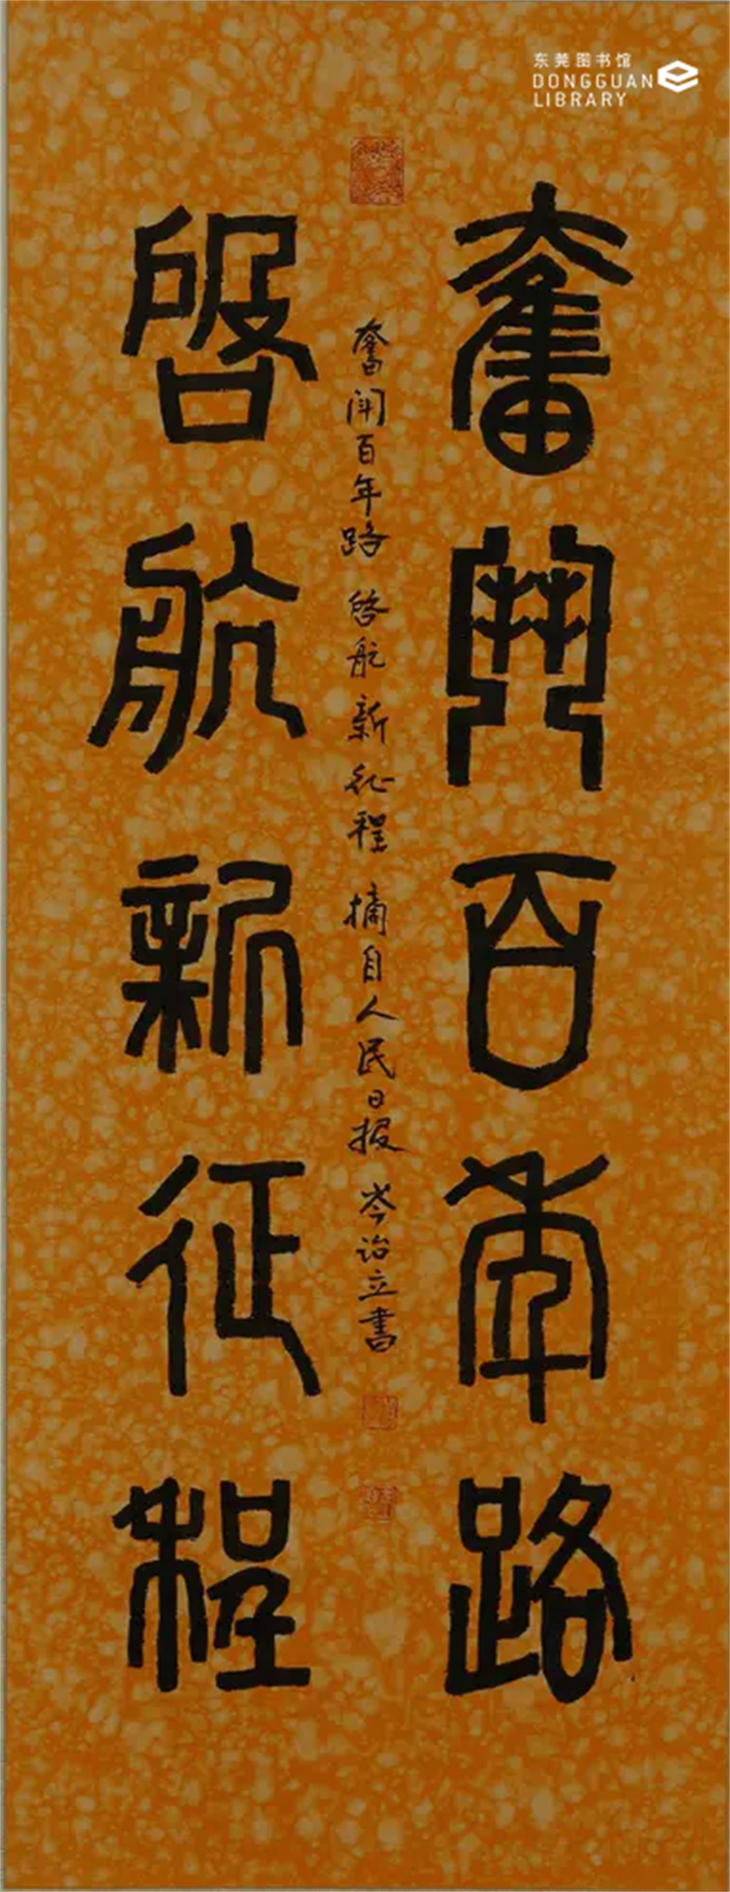 东莞图书馆
DONGGUAN
LIBRARY
奮鬥百年路
啟航新征程
奮閗百年路 啓航新征程 摘自人民日报 岑诒立書